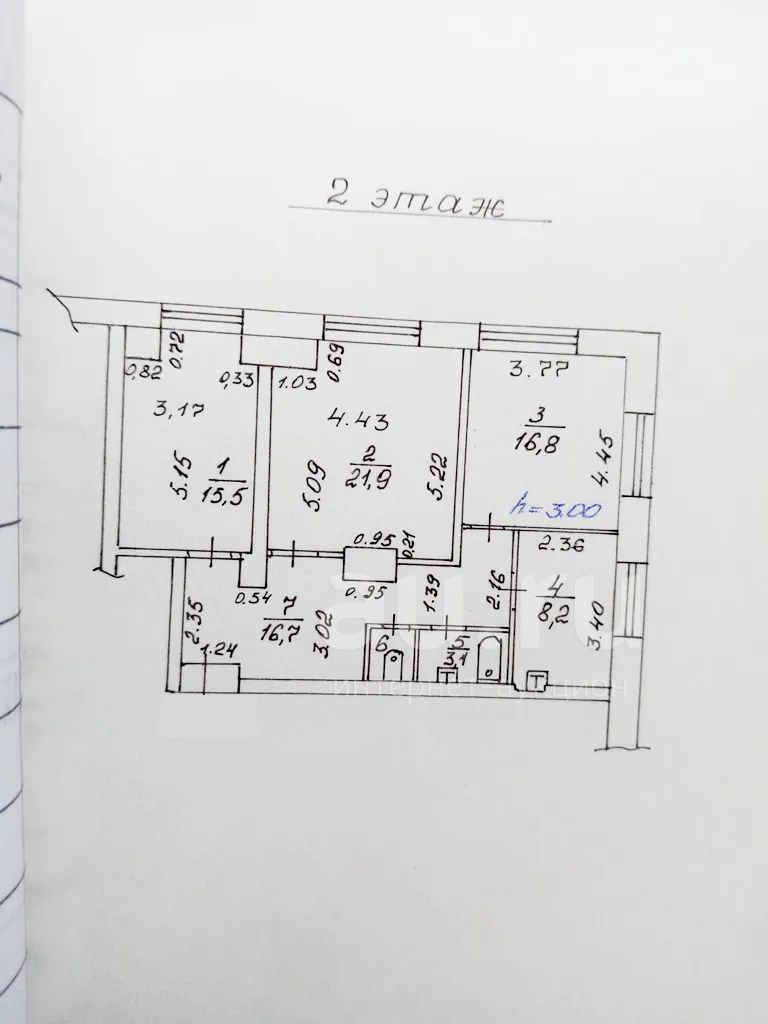 2 этаж
0,82
0.72
0,33
1.03
0.69
3.77
3,17
4.43
3
16,8
4.45
5.15
1
15,5
5.09
2
21,9
5.22
h=3.00
0.95
0,21
2.36
0.54
0.95
1.39
2.16
4
8,2
3.40
2.35
7
16,7
3.02
1.24
6
5
3,1
T
T
au.ru
интернет-аукцион